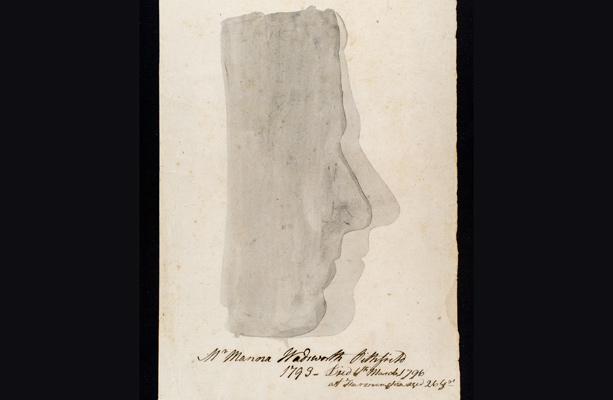 Mr Manora Wadsworth Pittsfield
1793 - Died 4th March 1796
at Farmington aged 26 yrs